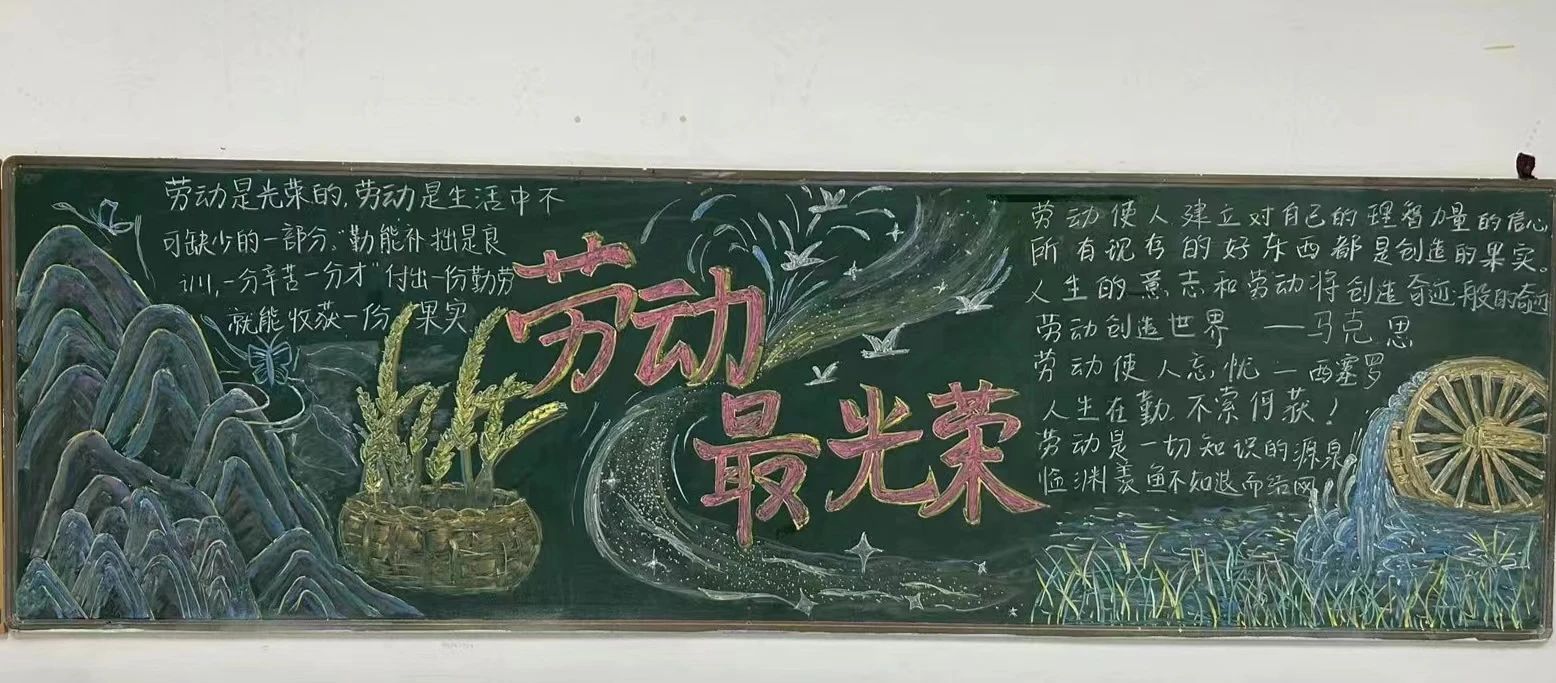 劳动是光荣的,劳动是生活中不
可缺少的一部分。"勤能补拙是良
训,一分辛苦一分才"付出一份勤劳
就能收获一份果实
劳动
最光荣
劳动使人建立对自己的理智力量的信心
所有现存的好东西都是创造的果实。
人生的意志和劳动将创造奇迹般的奇迹
劳动创造世界 —马克思
劳动使人忘忧 — 西塞罗
人生在勤 不索何获!
劳动是一切知识的源泉
临渊羡鱼不如退而结网!